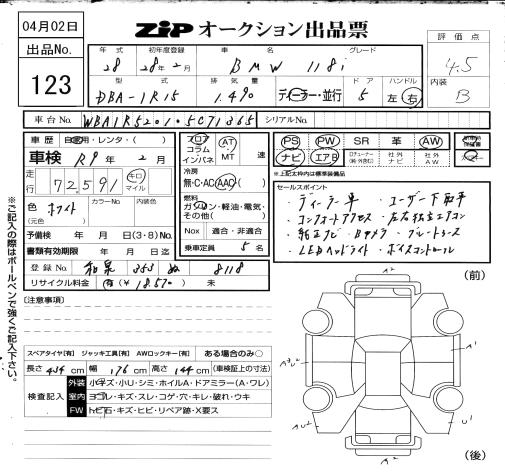 04月02日
ZiP オークション出品票
評価点
4.5
内装
B
出品No.
123
年式 初年度登録 車名 グレード
28 28年2月 BMW 118i
型式 排気量 ドア ハンドル
DBA-1R15 1.490 ディーラー・並行 5 左・右
車台No. WBA1R52010 5C71365 シリアルNo.
車歴 自家用・レンタ・( )
車検 R9年 2月
走行 72,591 キロ マイル
色 ホワイト (元色) カラーNo. 内装色
予備検 年 月 日(3・8)No.
書類有効期限 年 月 日迄
登録No. 和泉 353 ぬ 8118
リサイクル料金 有(¥18,570) 未
フロア コラム インパネ AT MT 速
冷房 無・C・AC・AAC
燃料 ガソリン・軽油・電気・その他( )
Nox 適合・非適合
乗車定員 5名
PS PW SR 革 AW
ナビ エアB 社外ナビ 社外AW
※上記太枠内は標準装備品
セールスポイント
・ディーラー車 ・ユーザー下取車
・コンフォートアクセス ・左右独立エアコン
・純正ナビ ・Bカメラ ・ブルートゥース
・LEDヘッドライト ・ボイスコントロール
※ご記入の際はボールペンで強くご記入下さい。
[注意事項]
スペアタイヤ[有] ジャッキ工具[有] AWロックキー[有] ある場合のみ○
長さ 434 cm 幅 176 cm 高さ 144 cm (車検証上の寸法)
検査記入
外装 小キズ・小U・シミ・ホイルA・ドアミラー(A・ワレ)
室内 ヨゴレ・キズ・スレ・コゲ・穴・キレ・破れ・ウキ
FW トビ石・キズ・ヒビ・リペア跡・X要ス
(前)
A2
A1
U1
A2
(後)